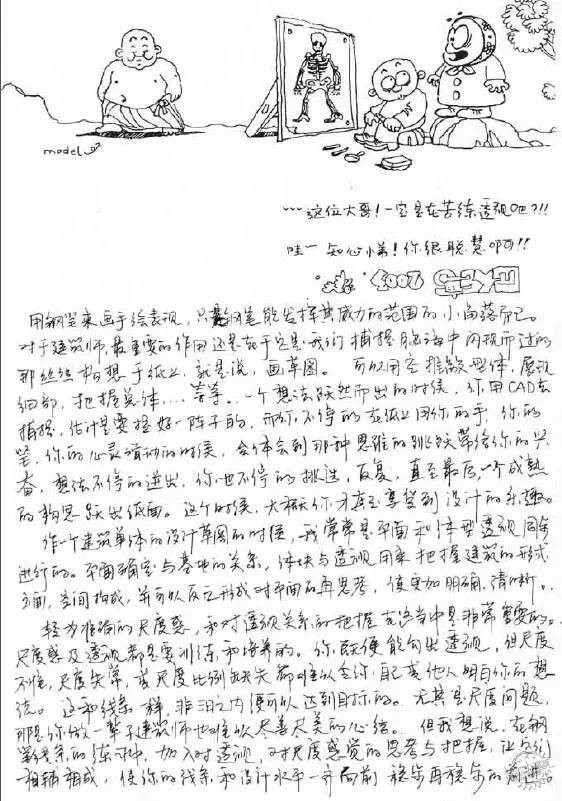 model
……这位大哥！一定是在苦练透视吧?!!
哇一 知心小弟！你很聪慧啊!!
EYES 2004
用钢笔来画手绘表现，只是钢笔能发挥其威力的范围的小角落而已。
对于建筑师，最重要的作用还是在于它是我们捕捉脑海中闪现而过的
那丝丝构想于纸上，就是说，画草图。 可以用它推敲型体，展现
细部，把握实体……等等。一个想法跃然而出的时候，你用CAD去
捕捉，估计是要搓好一阵子的，而你不停的在纸上用你的手，你的
笔，你的心灵涌动的时候，会体会到那种思维的跳跃带给你的兴
奋，想法不停的迸出，你也不停的挑选，反复，直至最后一个成熟
的构思跃出纸面。这个时候，大概你才真正享受到设计的乐趣。
作一个建筑单体的设计草图的时候，我常常是平面和体型透视同时
进行的。平面确定与基地的关系，体块与透视用来把握建筑的形式，
立面，空间构成，并可以反之形成对平面的再思考，使更加明确，清晰。
较为准确的尺度感，和对透视关系的把握在这当中是非常重要的。
尺度感及透视都是要训练和培养的。你既便能勾出透视，但尺度
不准，尺度失常，或尺度比例缺失都难以令你自己或他人明白你的想
法。 这和线条一样，非三日之内便可以达到目标的。尤其是尺度问题，
那是你做一辈子建筑师也难以尽善尽美的心结。 但我想说，在钢
笔线条的练习中，加入对透视，对尺度感觉的思考与把握，让它们
相辅相成，使你的线条和设计水平一齐向前 稳步再稳步的前进。